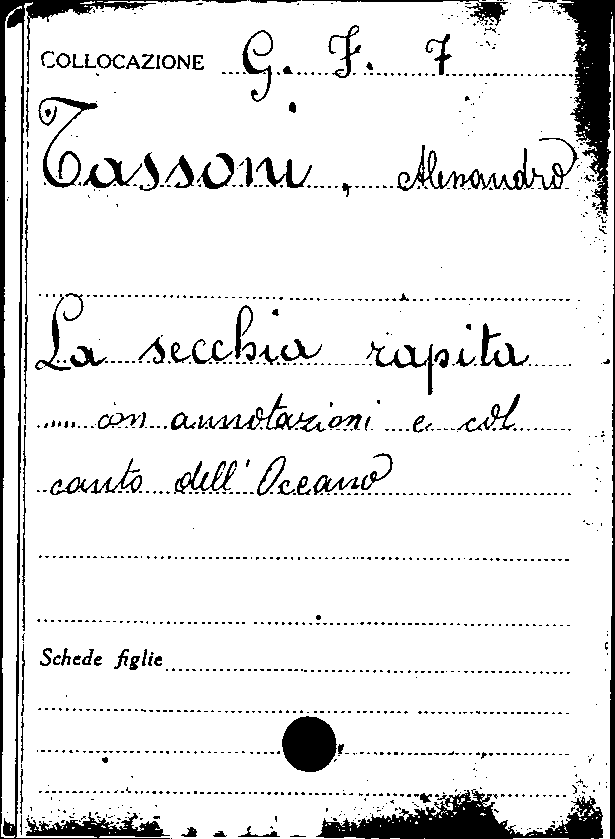 COLLOCAZIONE G. F. 7
Tassoni, Alessandro
La secchia rapita
..... con annotazioni e col
canto dell'Oceano
Schede figlie